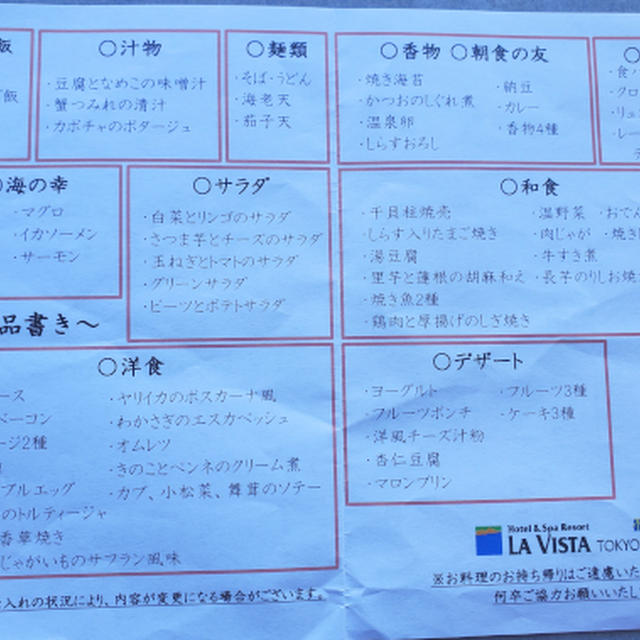 飯
飯
〇汁物
・豆腐となめこの味噌汁
・蟹つみれの清汁
・カボチャのポタージュ
〇麺類
・そば・うどん
・海老天
・茄子天
〇香物 〇朝食の友
・焼き海苔
・かつおのしぐれ煮
・温泉卵
・しらすおろし
・納豆
・カレー
・香物4種
〇
・食
・クロ
・リュ
・レー
〇海の幸
・マグロ
・イカソーメン
・サーモン
〇サラダ
・白菜とリンゴのサラダ
・さつま芋とチーズのサラダ
・玉ねぎとトマトのサラダ
・グリーンサラダ
・ビーツとポテトサラダ
〇和食
・干貝柱焼売
・しらす入りたまご焼き
・湯豆腐
・里芋と蓮根の胡麻和え
・焼き魚2種
・鶏肉と厚揚げのしぎ焼き
・温野菜
・肉じゃが
・牛すき煮
・長芋のりしお焼
・おでん
・焼き
品書き〜
〇洋食
ース
ベーコン
ージ2種
ブルエッグ
のトルティージャ
香草焼き
じゃがいものサフラン風味
・ヤリイカのボスカーナ風
・わかさぎのエスカベッシュ
・オムレツ
・きのことペンネのクリーム煮
・カブ、小松菜、舞茸のソテー
〇デザート
・ヨーグルト
・フルーツポンチ
・洋風チーズ汁粉
・杏仁豆腐
・マロンプリン
・フルーツ3種
・ケーキ3種
Hotel & Spa Resort
LA VISTA TOKYO
入れの状況により、内容が変更になる場合がございます。
※お料理のお持ち帰りはご遠慮いた
何卒ご協力お願いいたし